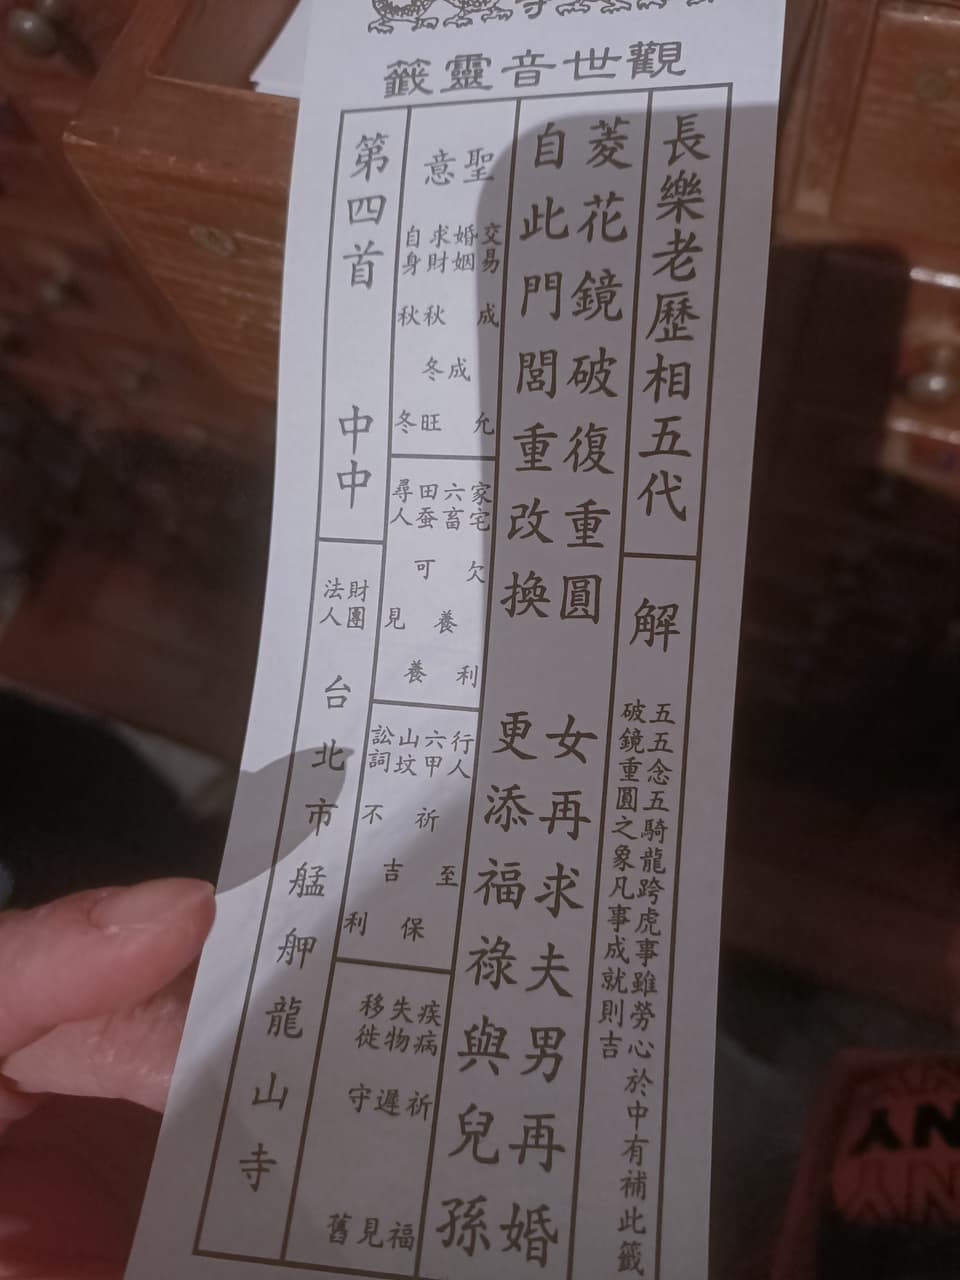 寺
觀世音靈籤
長樂老歷相五代
解
五五念五騎龍跨虎事雖勞心於中有補此籤
破鏡重圓之象凡事成就則吉
菱花鏡破復重圓　女再求夫男再婚
自此門閭重改換　更添福祿與兒孫
聖意
交易成允
婚姻成
求財秋冬旺
自身秋冬
家宅欠利
六畜養
田蚕可養
尋人見
行人至
六甲祈保
山坟吉
訟詞不利
疾病祈福
失物遲見
移徙守舊
第四首　中中
財團法人　台北市艋舺龍山寺